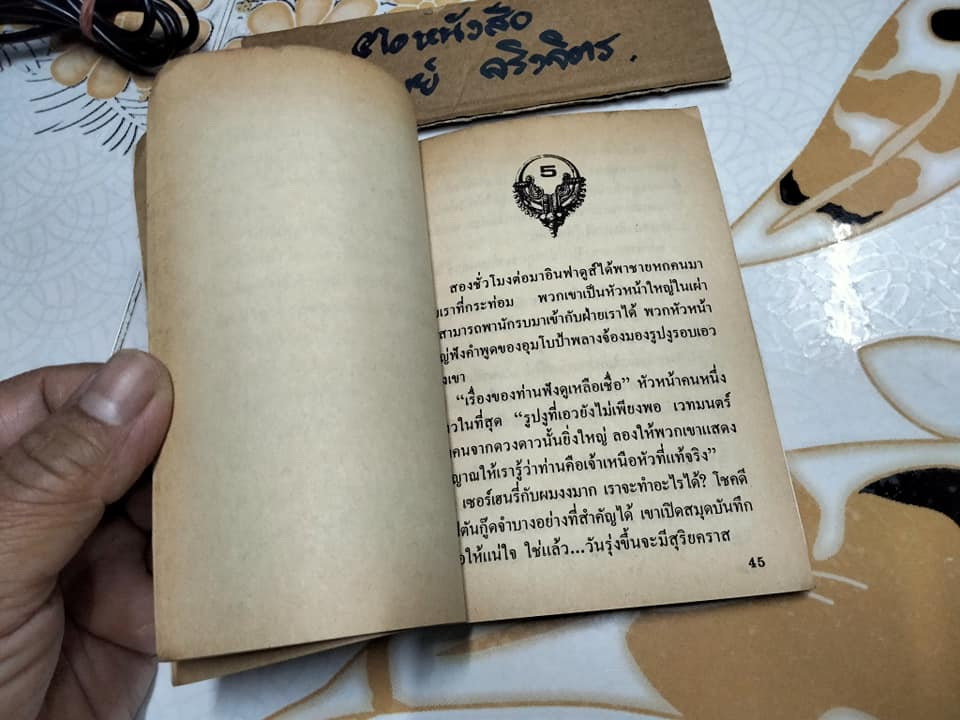 ร้านหนังสือ
จริงจิตร.
5
สองชั่วโมงต่อมาอินฟาดูส์ได้พาชายหกคนมา
เราที่กระท่อม พวกเขาเป็นหัวหน้าใหญ่ในเผ่า
สามารถพานักรบมาเข้ากับฝ่ายเราได้ พวกหัวหน้า
ฟังคำพูดของอุมโบป้าพลางจ้องมองรูปงูรอบเอว
เขา
“เรื่องของท่านฟังดูเหลือเชื่อ” หัวหน้าคนหนึ่ง
ในที่สุด “รูปงูที่เอวยังไม่เพียงพอ เวทมนตร์
คนจากดวงดาวนั้นยิ่งใหญ่ ลองให้พวกเขาแสดง
ญาณให้เรารู้ว่าท่านคือเจ้าเหนือหัวที่แท้จริง”
เซอร์เฮนรี่กับผมงงมาก เราจะทำอะไรได้? โชคดี
ตันกู๊ดจำบางอย่างที่สำคัญได้ เขาเปิดสมุดบันทึก
ให้แน่ใจ ใช่แล้ว...วันรุ่งขึ้นจะมีสุริยคราส
45